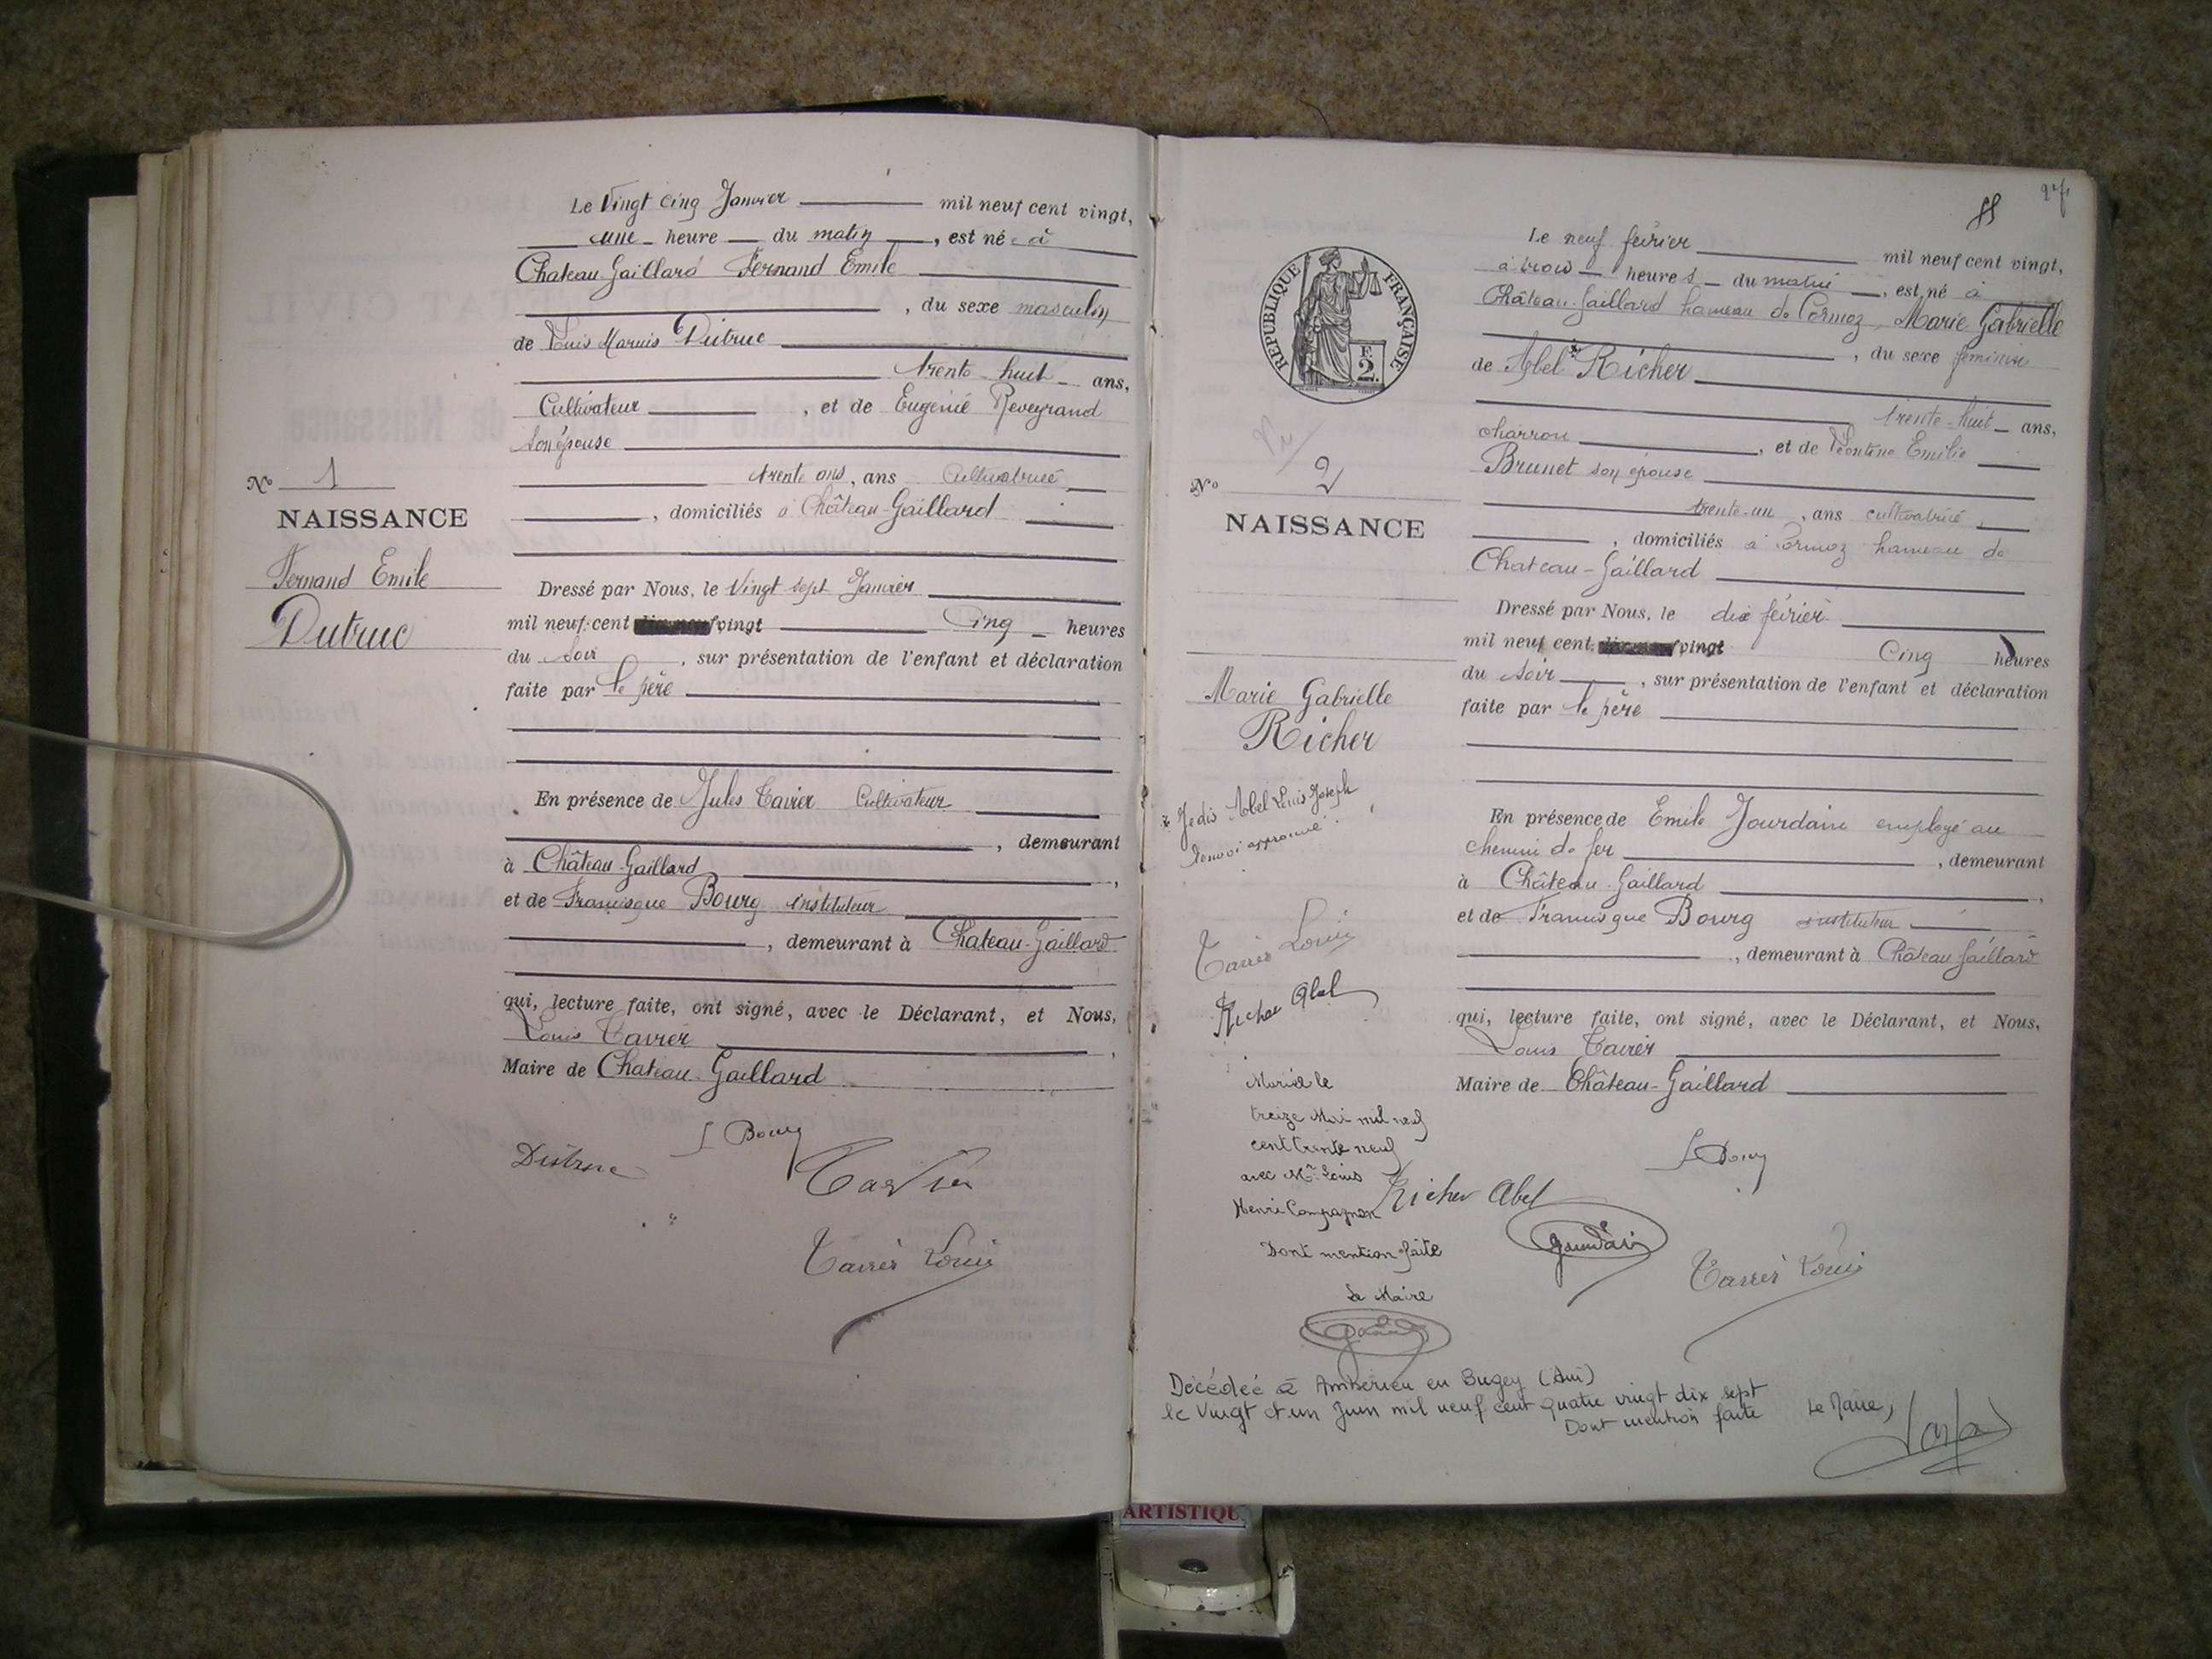 Le Vingt Cinq Janvier mil neuf cent vingt,
une heure du matin, est né à
Chateau-Gaillard Fernand Emile
, du sexe masculin
de Louis Marius Dutruc
trente huit ans,
Cultivateur , et de Eugénie Reveyrand
son épouse
trente ans, ans Cultivatrice
, domiciliés à Château-Gaillard
No 1
NAISSANCE
Fernand Emile
Dutruc
Dressé par Nous, le Vingt sept Janvier
mil neuf cent vingt Cinq heures
du soir , sur présentation de l'enfant et déclaration
faite par le père
En présence de Jules Tavier Cultivateur
, demeurant
à Château Gaillard ,
et de Francisque Bourg instituteur
, demeurant à Chateau-Gaillard
qui, lecture faite, ont signé, avec le Déclarant, et Nous,
Louis Tavier ,
Maire de Chateau Gaillard
Dutruc
F Bourg
Tavier
Tavier Louis
27
88
Le neuf février mil neuf cent vingt,
à trois heures du matin, est né à
Château-Gaillard hameau de Cormoz, Marie Gabrielle
, du sexe féminin
de Abel * Richer
trente-huit ans,
charron , et de Léontine Emilie
Brunet son épouse
trente-un , ans cultivatrice
, domiciliés à Cormoz hameau de
Chateau-Gaillard
RÉPUBLIQUE FRANÇAISE
E.
2.
Vu
No 2
NAISSANCE
Marie Gabrielle
Richer
Dressé par Nous, le dix février
mil neuf cent vingt Cinq heures
du soir , sur présentation de l'enfant et déclaration
faite par le père
En présence de Emile Jourdain employé au
chemin de fer , demeurant
à Château-Gaillard ,
et de Francisque Bourg instituteur
, demeurant à Château Gaillard
qui, lecture faite, ont signé, avec le Déclarant, et Nous,
Louis Tavier
Maire de Château-Gaillard
* Je dis Abel Louis Joseph
Renvoi approuvé.
Tavier Louis
Richer Abel
Mariée le
treize Mai mil neuf
cent trente neuf
avec Mr Louis
Henri Compagnon
Dont mention faite
Le Maire
Richer Abel
F Bourg
Jourdain
Tavier Louis
Décédée à Ambérieu en Bugey (Ain)
le Vingt et un Juin mil neuf cent quatre vingt dix sept
Dont mention faite Le Maire,
ARTISTIQU